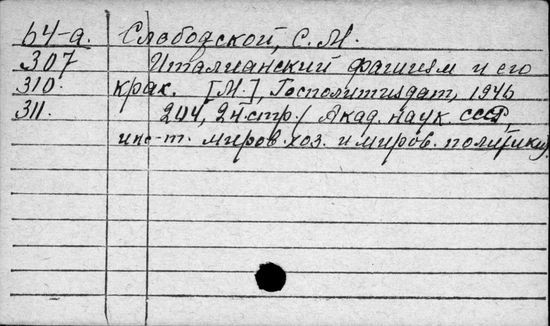 64-а. Слободской, С. М.
307 Италианский фашизм и его
310. крах. [М.], Госполитиздат, 1946
311. 204, 2 н. стр. / Акад. наук СССР,
инс-т. миров. хоз. и миров. политики).